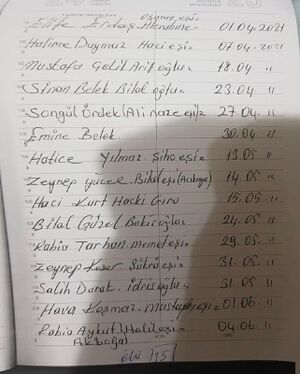 Osman eşi
Elife Erdaş Merahner 01.04.2021
Halime Duymaz Haci eşi 07.04.2021
Mustafa Gelik Arif oğlu 18.04. "
Sinan Belek Bilal oğlu 23.04 "
Songül Ördek (Ali naze eşi) 27.04. "
Emine Belek 30.04 "
Hatice Yılmaz şiho eşi 13.05 "
Zeynep yücel Bilal eşi 14.05 "
Haci Kurt Hacki Giro 15.05. "
Bilal Güzel Bekir oğlu 24.05 "
Rabia Tarhan memet eşi 29.05. "
Zeynep Keser Şükrü eşi 31.05 "
Salih Durak idris oğlu 31.05 "
Hava Koşmaz mustafa eşi 01.06 "
Rabia Aykut Halil eşi 04.06 "
Akboğa
ölü 15